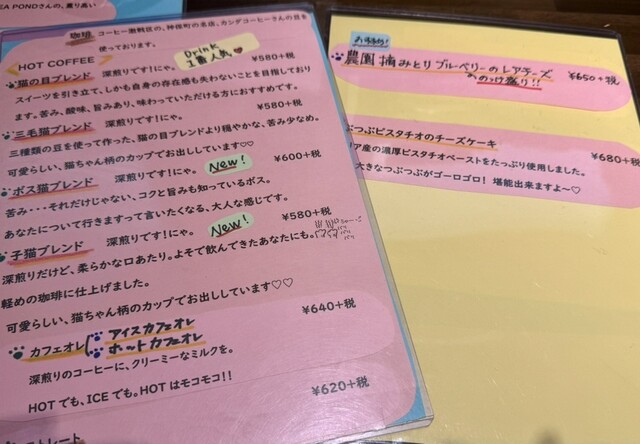 EA PONDさんの、薫り高い
珈琲 コーヒー激戦区の、神保町の名店、カンダコーヒーさんの豆を
使っております。
HOT COFFEE
Drink
1番人気♥
猫の目ブレンド 深煎りです!にゃ。 ¥580+税
スイーツを引き立て、しかも自身の存在感も失わないことを目指しており
ます。苦み、酸味、旨みあり、味わっていただける方におすすめです。
三毛猫ブレンド 深煎りです!にゃ。 ¥580+税
三種類の豆を使って作った、猫の目ブレンドより穏やかな、苦み少なめ。
可愛らしい、猫ちゃん柄のカップでお出ししています♡♡
ボス猫ブレンド 深煎りです!にゃ。 New! ¥600+税
苦み・・・それだけじゃない、コクと旨みも知っているボス。
あなたについて行きますって言いたくなる、大人な感じです。
子猫ブレンド 深煎りです!にゃ。 New! ¥580+税
深煎りだけど、柔らかな口あたり。よそで飲んできたあなたにも。
軽めの珈琲に仕上げました。
可愛らしい、猫ちゃん柄のカップでお出ししています♡♡
¥640+税
カフェオレ アイスカフェオレ
ホットカフェオレ
深煎りのコーヒーに、クリーミーなミルクを。
HOTでも、ICEでも。HOTはモコモコ!!
¥620+税
ストレート
おすすめ!
農園摘みとりブルーベリーのレアチーズ ¥650+税
のっけ盛り!!
ぶつぶピスタチオのチーズケーキ
¥680+税
リア産の濃厚ピスタチオペーストをたっぷり使用しました。
大きなつぶつぶがゴーロゴロ!堪能出来ますよ~♡